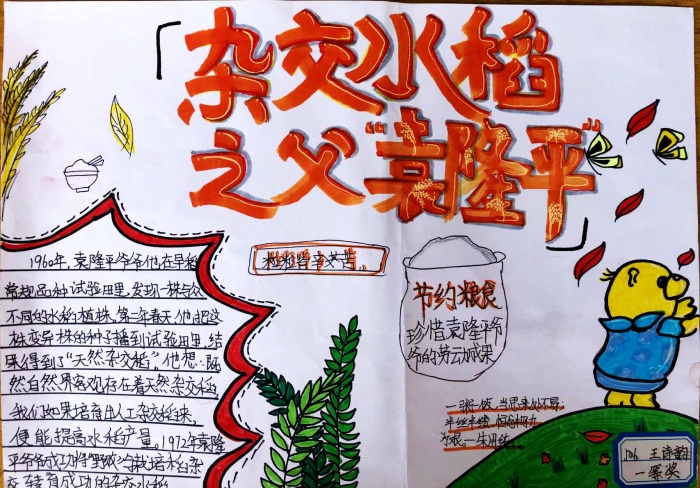 「杂交水稻
之父“袁隆平”」
粒粒皆辛苦。
1960年，袁隆平爷爷他在早稻
常规品种试验田里，发现一株与众
不同的水稻植株。第二年春天他把这
株变异株的种子播到试验田里，结
果得到了“天然杂交稻”。他想：既
然自然界客观存在着天然杂交稻
我们如果培育出人工杂交稻来，
便能提高水稻产量。1972年袁隆
平爷爷成功将野败与栽培稻杂
交 转育成功的杂交水稻
节约粮食
珍惜袁隆平爷
爷的劳动成果
一粥一饭，当思来处不易；
半丝半缕，恒念物力
一等奖